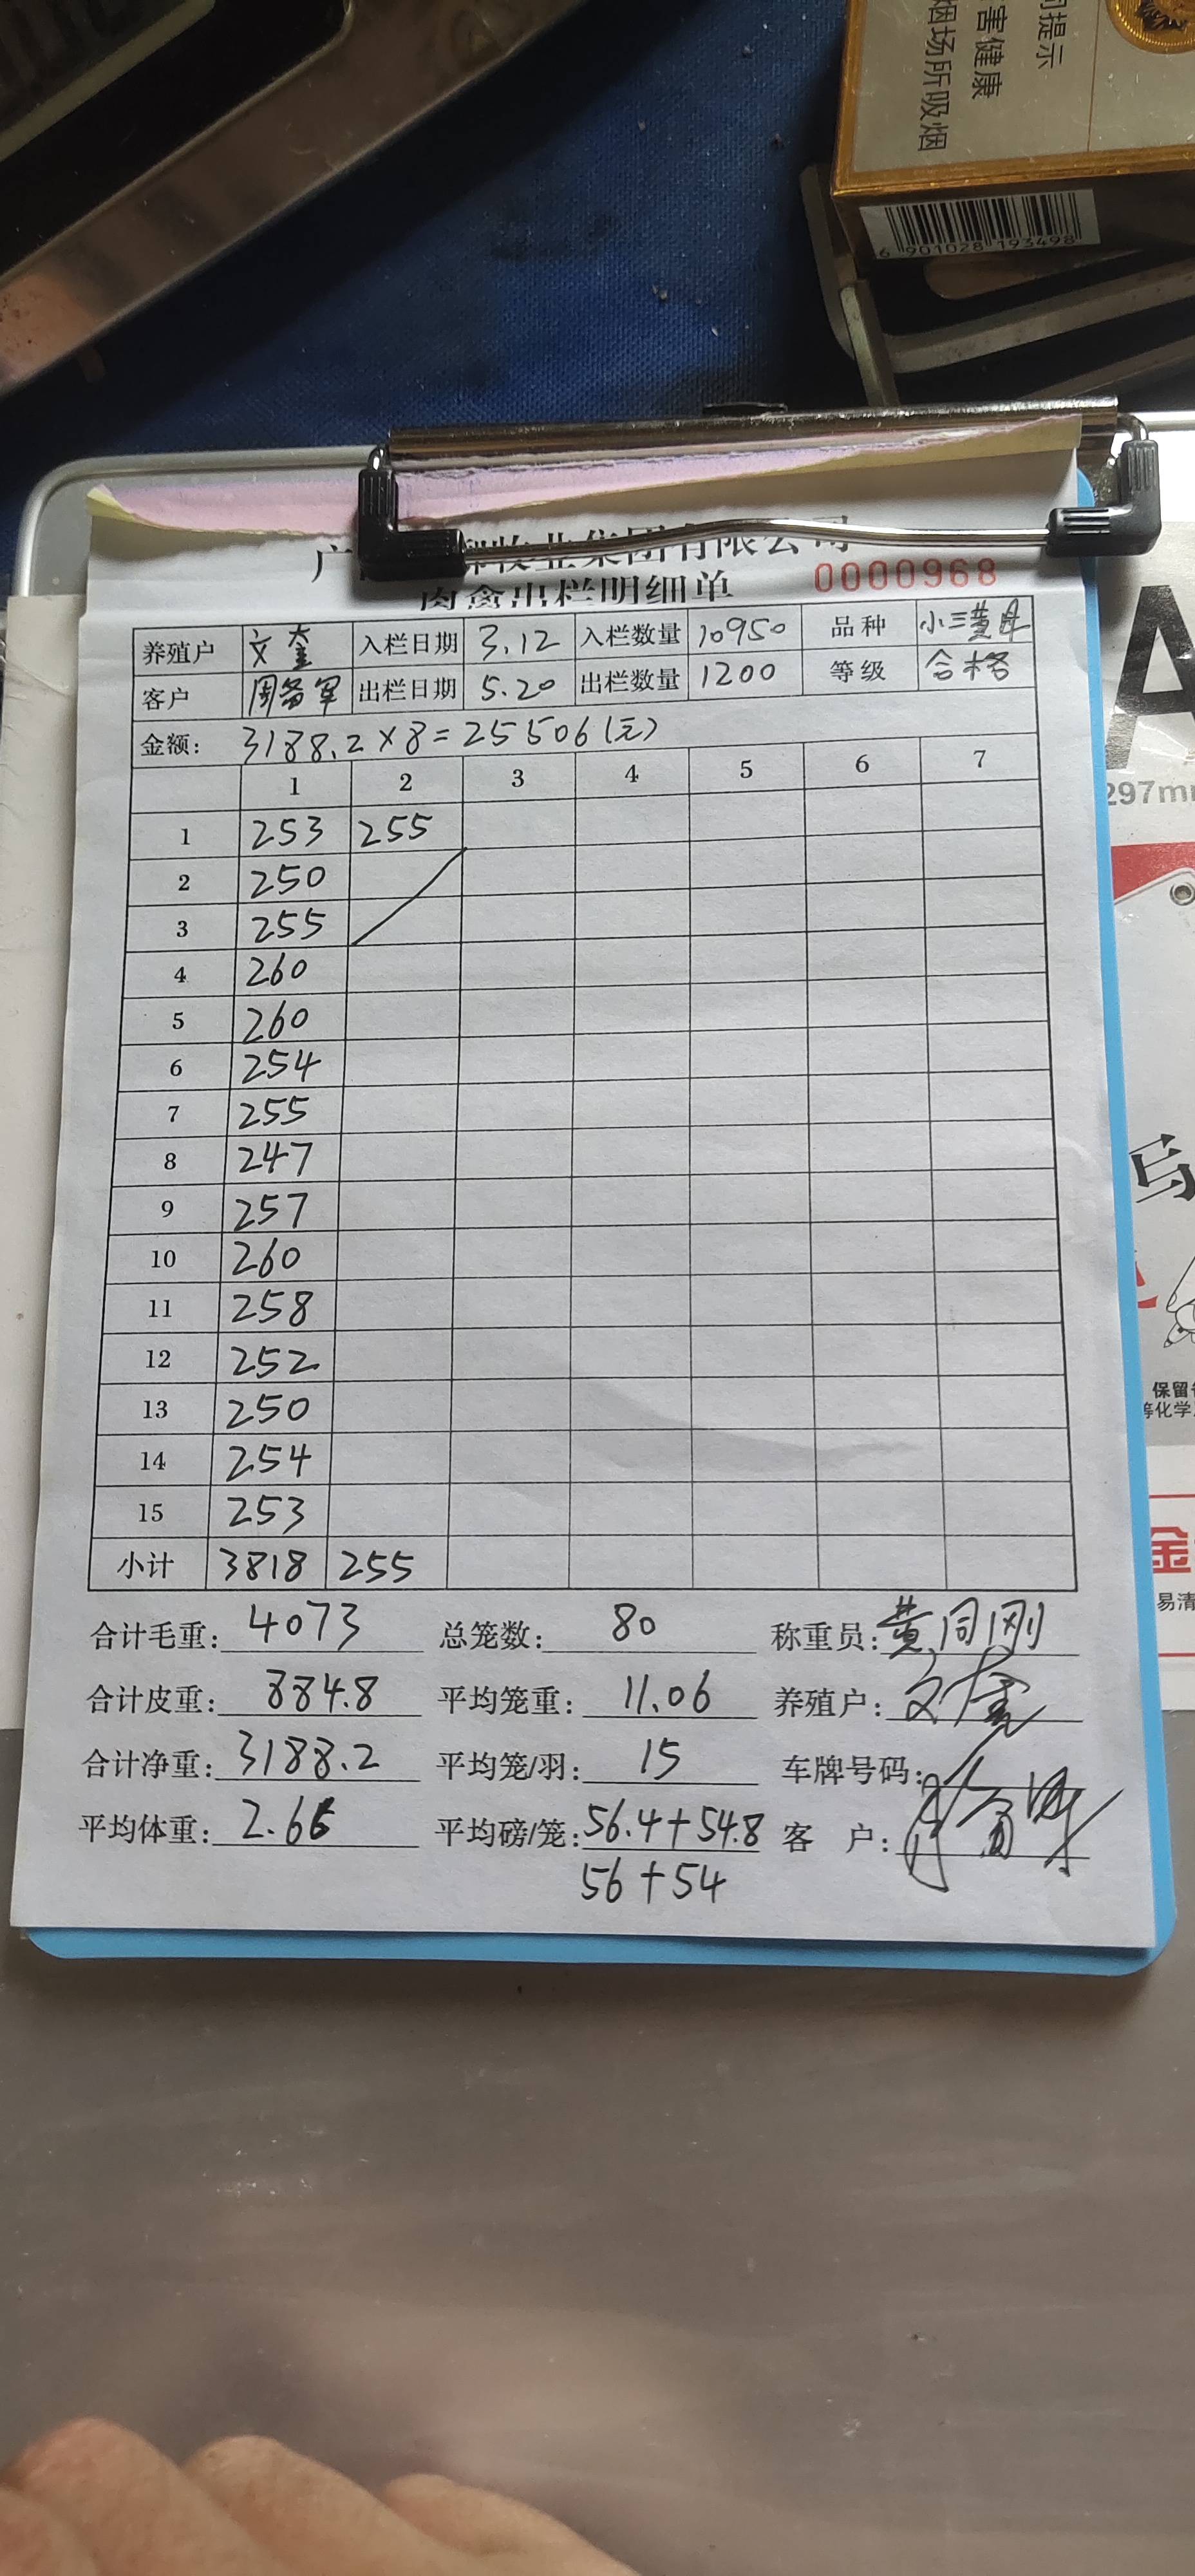 问提示
害健康
烟场所吸烟
6 901028 193498
牧业集团有限公司
肉禽出栏明细单 0000968
养殖户 文奎 入栏日期 3.12 入栏数量 10950 品种 小三黄母
客户 周备军 出栏日期 5.20 出栏数量 1200 等级 合格
金额: 3188.2×8=25506(元)
1 2 3 4 5 6 7
1 253 255
2 250
3 255
4 260
5 260
6 254
7 255
8 247
9 257
10 260
11 258
12 252
13 250
14 254
15 253
小计 3818 255
合计毛重: 4073 总笼数: 80 称重员: 黄同刚
合计皮重: 884.8 平均笼重: 11.06 养殖户: 文奎
合计净重: 3188.2 平均笼/羽: 15 车牌号码:
平均体重: 2.66 平均磅/笼: 56.4+54.8 客 户:
56+54
A
297mm
写
保留
等化学
金
易清